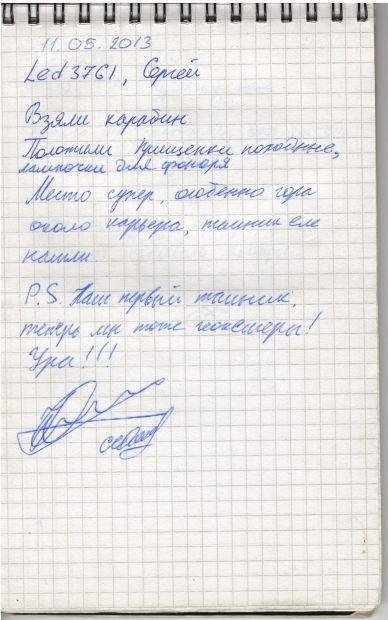 11.05.2013
Led3761, Сергей
Взяли карабин
Положили прищепки походные,
лампочки для фонаря
Место супер, особенно гора
около карьера, тайник еле
нашли
P.S. Наш первый тайник,
теперь мы тоже геокешеры!
Ура!!!